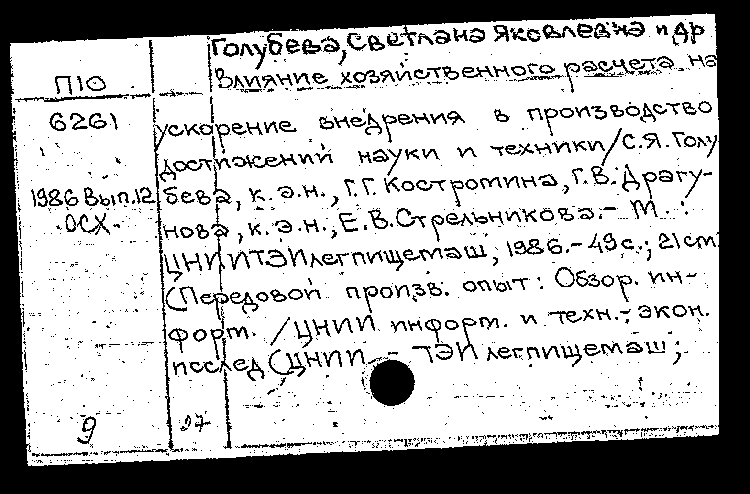 Голубева, Светлана Яковлевна и др
Влияние хозяйственного расчета на
П10
6261
ускорение внедрения в производство
достижений науки и техники / С.Я. Голу
1986 Вып.12
бева, к.э.н., Г.Г. Костромина, Г.В. Драгу-
ОСХ.
нова, к.э.н., Е.В. Стрельникова. - М. :
ЦНИИТЭИлегпищемаш, 1986. - 49 с.; 21 см
(Передовой произв. опыт : Обзор. ин-
форм. / ЦНИИ информ. и техн.-экон.
исслед (ЦНИИ - ТЭИ легпищемаш ;
9
97